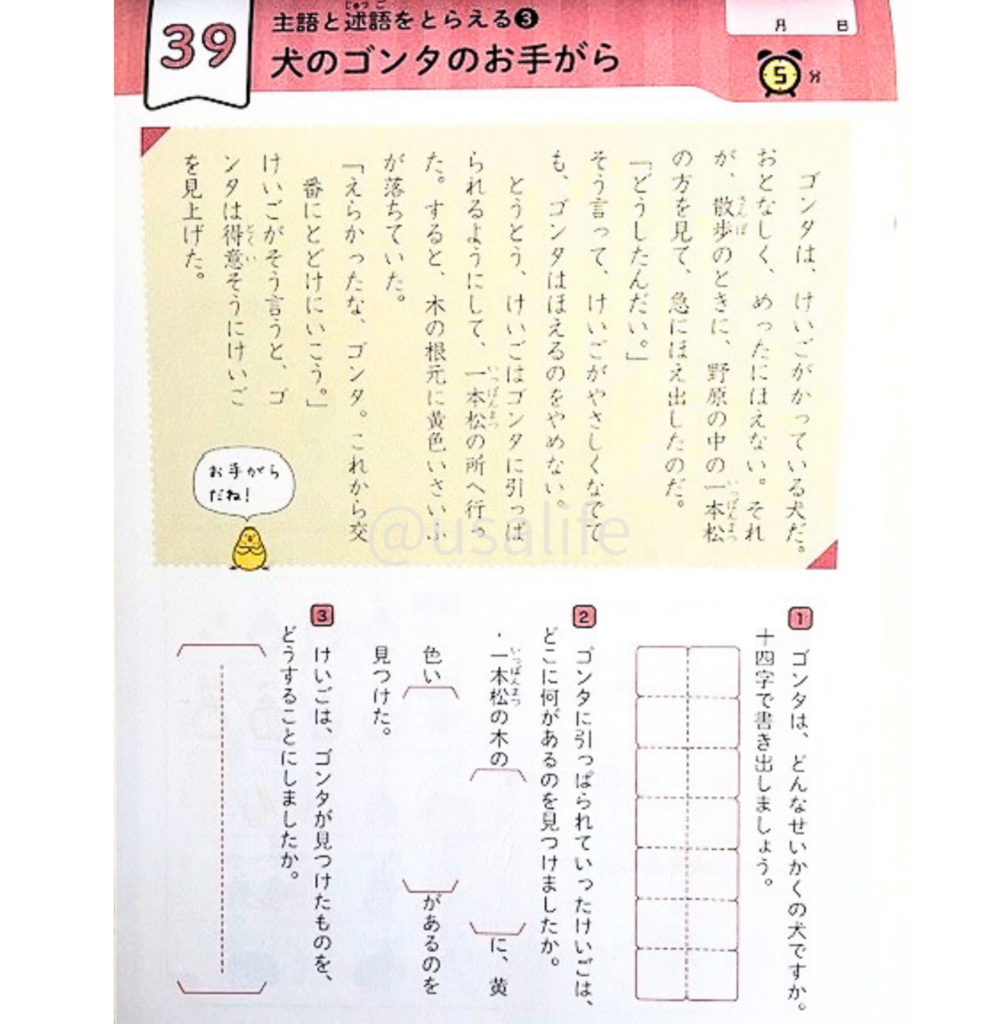 39
主語と述語をとらえる❸
じゅつご
犬のゴンタのお手がら
月 日
5分
ゴンタは、けいごがかっている犬だ。
おとなしく、めったにほえない。それ
が、散歩のときに、野原の中の一本松
さんぽ
いっぽんまつ
の方を見て、急にほえ出したのだ。
「どうしたんだい。」
そう言って、けいごがやさしくなでて
も、ゴンタはほえるのをやめない。
とうとう、けいごはゴンタに引っぱ
られるようにして、一本松の所へ行っ
いっぽんまつ
た。すると、木の根元に黄色いさいふ
が落ちていた。
「えらかったな、ゴンタ。これから交
番にとどけにいこう。」
けいごがそう言うと、ゴ
ンタは得意そうにけいご
とくい
を見上げた。
お手がら
だね!
@usalife
1
ゴンタは、どんなせいかくの犬ですか。
十四字で書き出しましょう。
2
ゴンタに引っぱられていったけいごは、
どこに何があるのを見つけましたか。
・一本松の木の に、黄
いっぽんまつ
色い があるのを
見つけた。
3
けいごは、ゴンタが見つけたものを、
どうすることにしましたか。